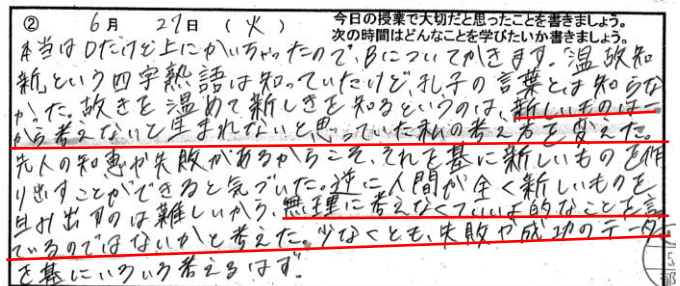 ② 6月27日(火) 今日の授業で大切だと思ったことを書きましょう。
次の時間はどんなことを学びたいか書きましょう。
本当はDだけど上にかいちゃったので、Bについてかきます。温故知
新という四字熟語は知っていたけど、孔子の言葉とは知らな
かった。故きを温めて新しきを知るというのは、新しいものは一
から考えないと生まれないと思っていた私の考え方を変えた。
先人の知恵や失敗があるからこそ、それを基に新しいものを作
り出すことができると気づいた。逆に人間が全く新しいものを
生み出すのは難しいから、無理に考えなくていいよ的なことを言
ているのではないかと考えた。少なくとも、失敗や成功のデータ
を基にいろいろ考えるはず。